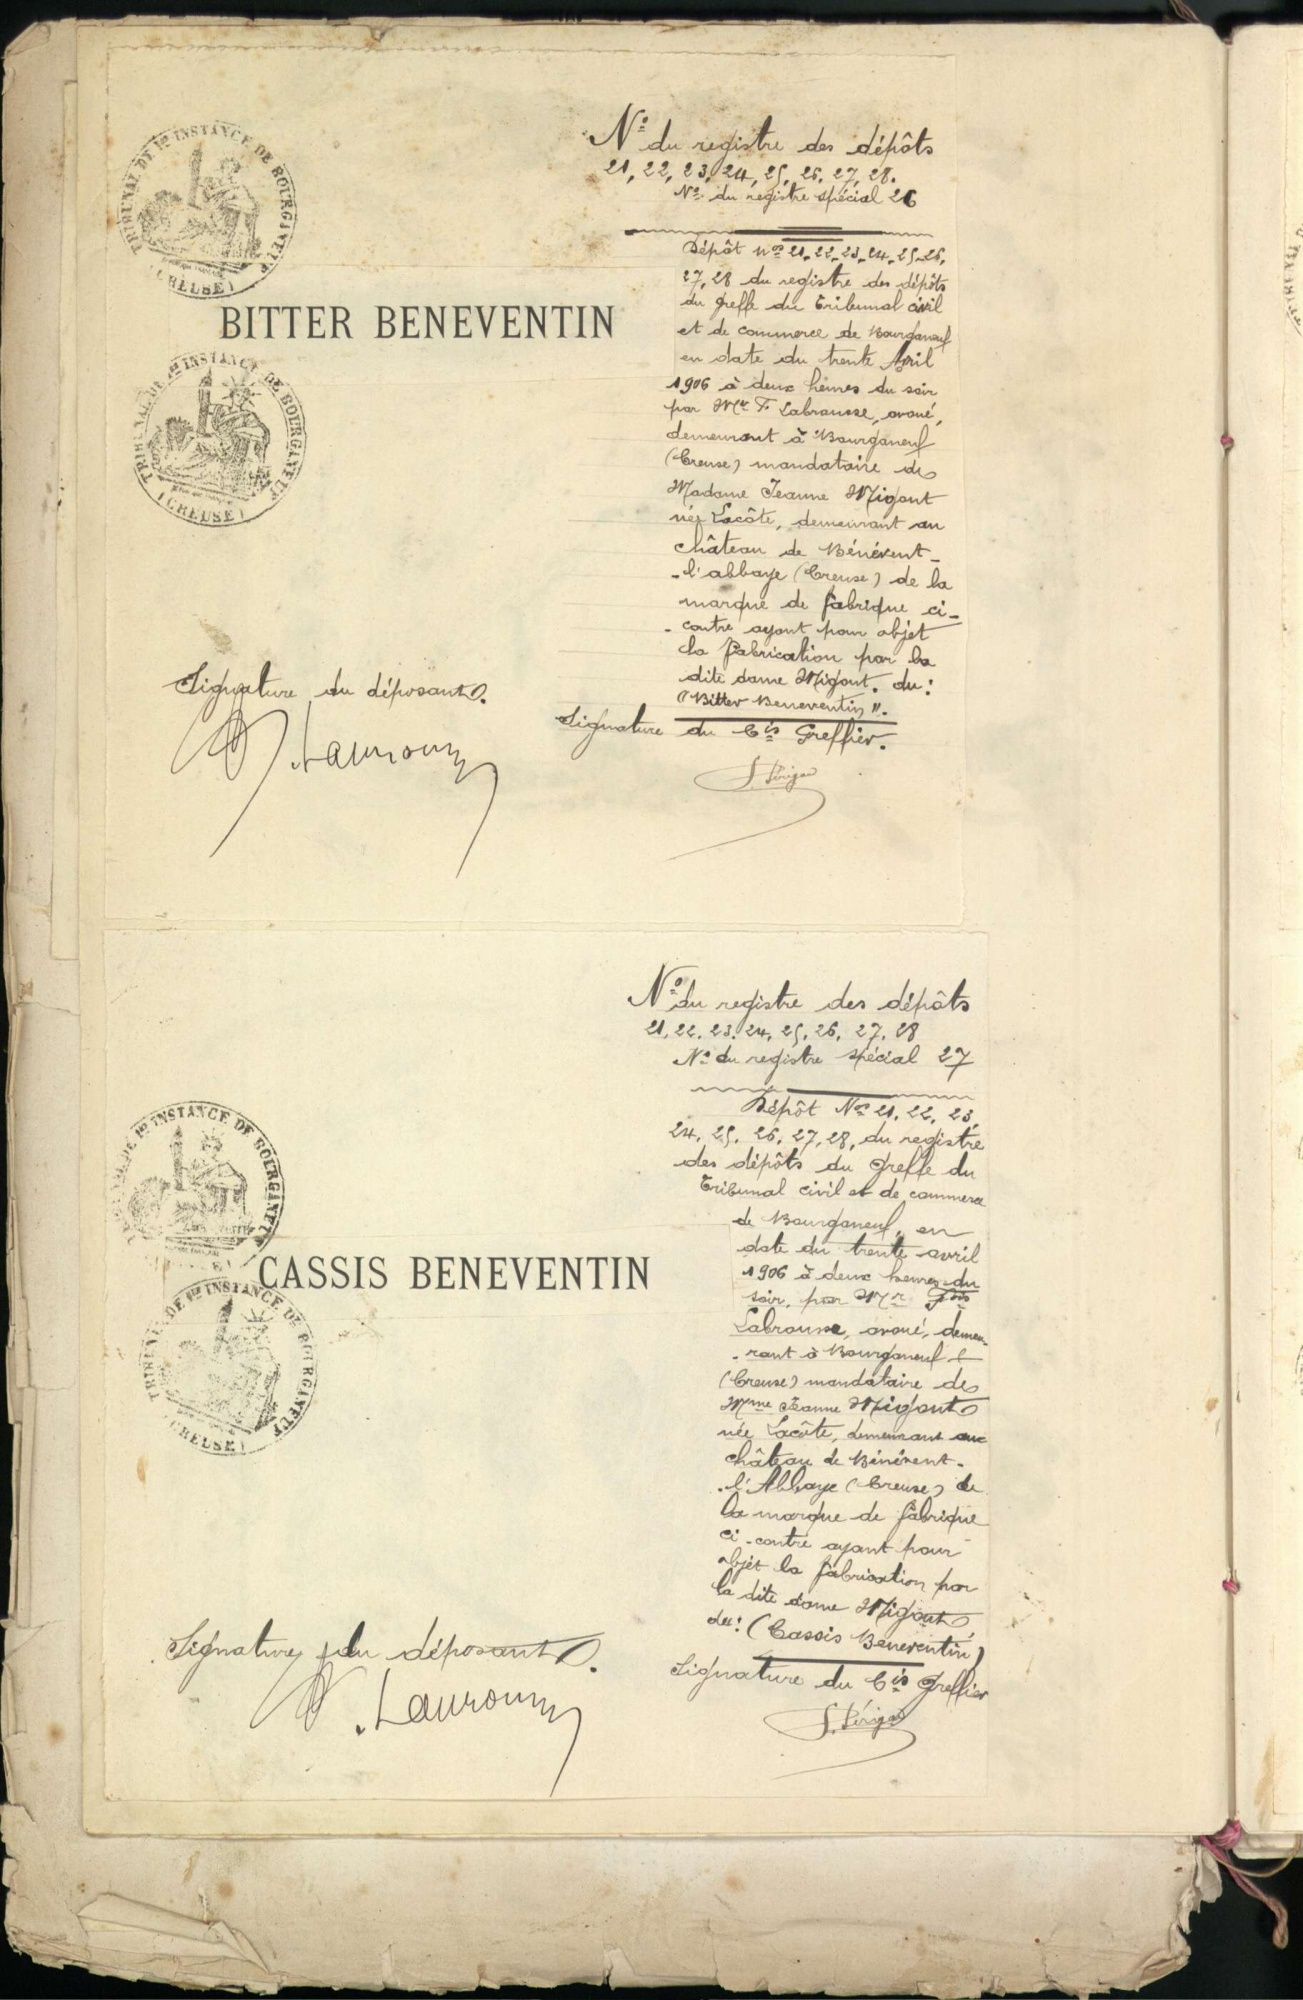 TRIBUNAL DE 1re INSTANCE DE BOURGANEUF
(CREUSE)
BITTER BENEVENTIN
TRIBUNAL DE 1re INSTANCE DE BOURGANEUF
(CREUSE)
No du registre des dépôts
21, 22, 23, 24, 25, 26, 27, 28.
No du registre spécial 26
Dépôt Nos 21, 22, 23, 24, 25, 26,
27, 28 du registre des dépôts
du Greffe du Tribunal civil
et de commerce de Bourganeuf
en date du trente Avril
1906 à deux heures du soir
par Mr F. Labrousse, avoué,
demeurant à Bourganeuf
(Creuse) mandataire de
Madame Jeanne Migout
née Lacôte, demeurant au
château de Bénévent-
-l'abbaye (Creuse) de la
marque de fabrique ci-
-contre ayant pour objet
la fabrication par la
dite dame Migout. du:
"Bitter Beneventin".
Signature du déposant.
Signature du Cis Greffier.
No du registre des dépôts
21, 22, 23, 24, 25, 26, 27, 28
No du registre spécial 27
Dépôt Nos 21, 22, 23,
24, 25, 26, 27, 28, du registre
des dépôts du Greffe du
Tribunal civil et de commerce
de Bourganeuf, en
date du trente avril
1906 à deux heures du
soir, par Mr Fois
Labrousse, avoué, demeu-
-rant à Bourganeuf
(Creuse) mandataire de
Mme Jeanne Migout
née Lacôte, demeurant au
château de Bénévent-
-l'Abbaye (Creuse) de
la marque de fabrique
ci-contre ayant pour
objet la fabrication par
la dite dame Migout
du: (Cassis Beneventin)
TRIBUNAL DE 1re INSTANCE DE BOURGANEUF
CASSIS BENEVENTIN
TRIBUNAL DE 1re INSTANCE DE BOURGANEUF
(CREUSE)
Signature du déposant.
Signature du Cis Greffier